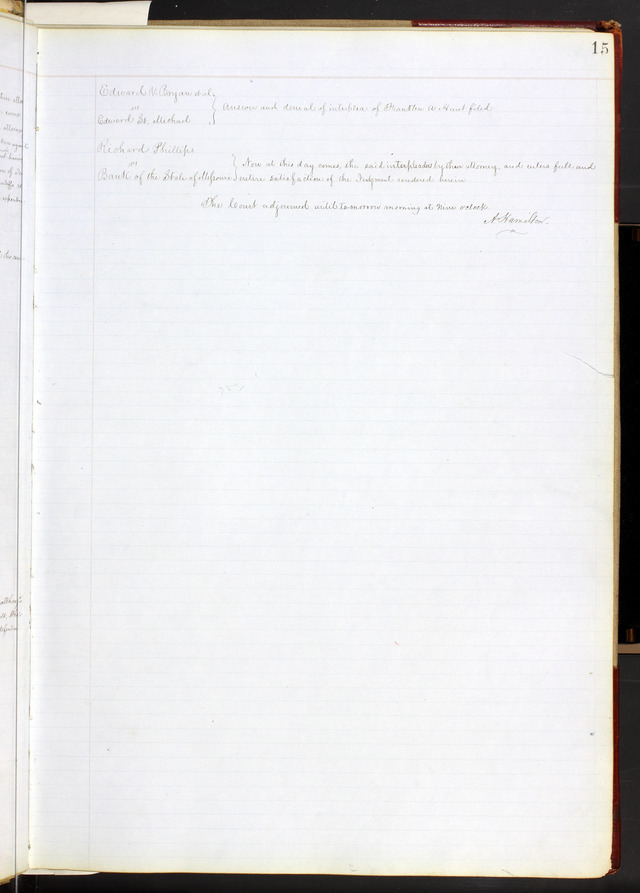 15
Edward V. Bryan et al
vs } Answer and denial of interplea of Franklin A Hunt filed
Edward St. Michael
Richard Phillips
vs } Now at this day comes the said interpleader by their Attorney, and enters full and
Bank of the State of Missouri entire satisfaction of the Judgment rendered herein
The Court adjourned until tomorrow morning at Nine oclock
A Hamilton.